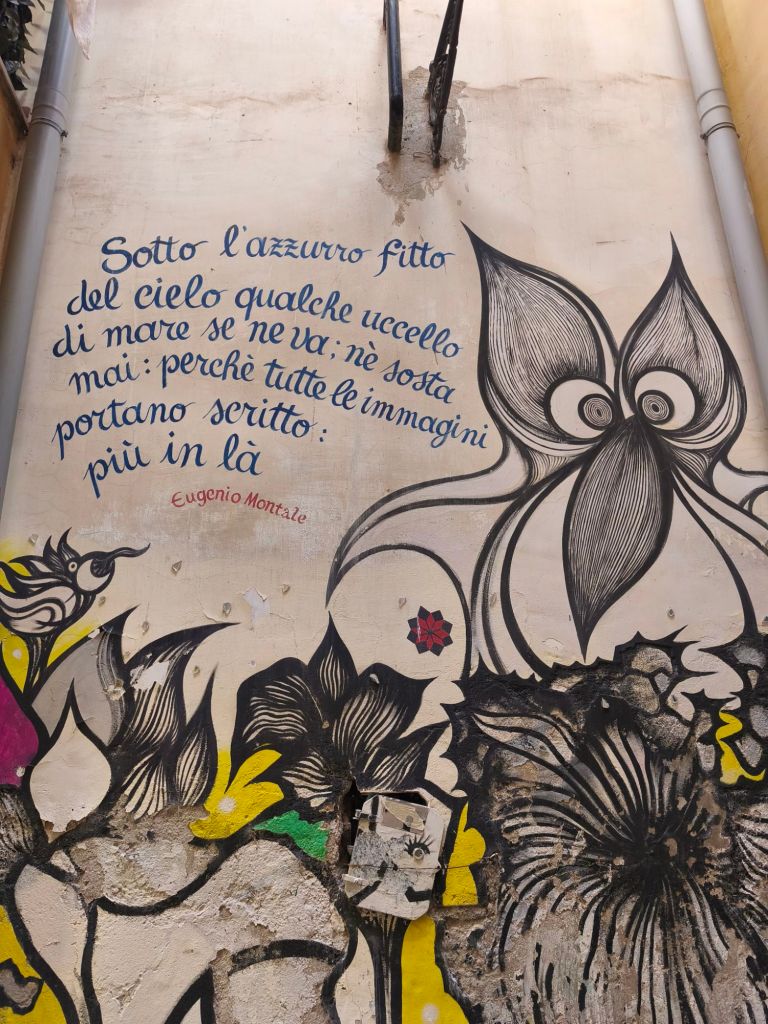 Sotto l'azzurro fitto
del cielo qualche uccello
di mare se ne va; nè sosta
mai: perchè tutte le immagini
portano scritto:
più in là
Eugenio Montale